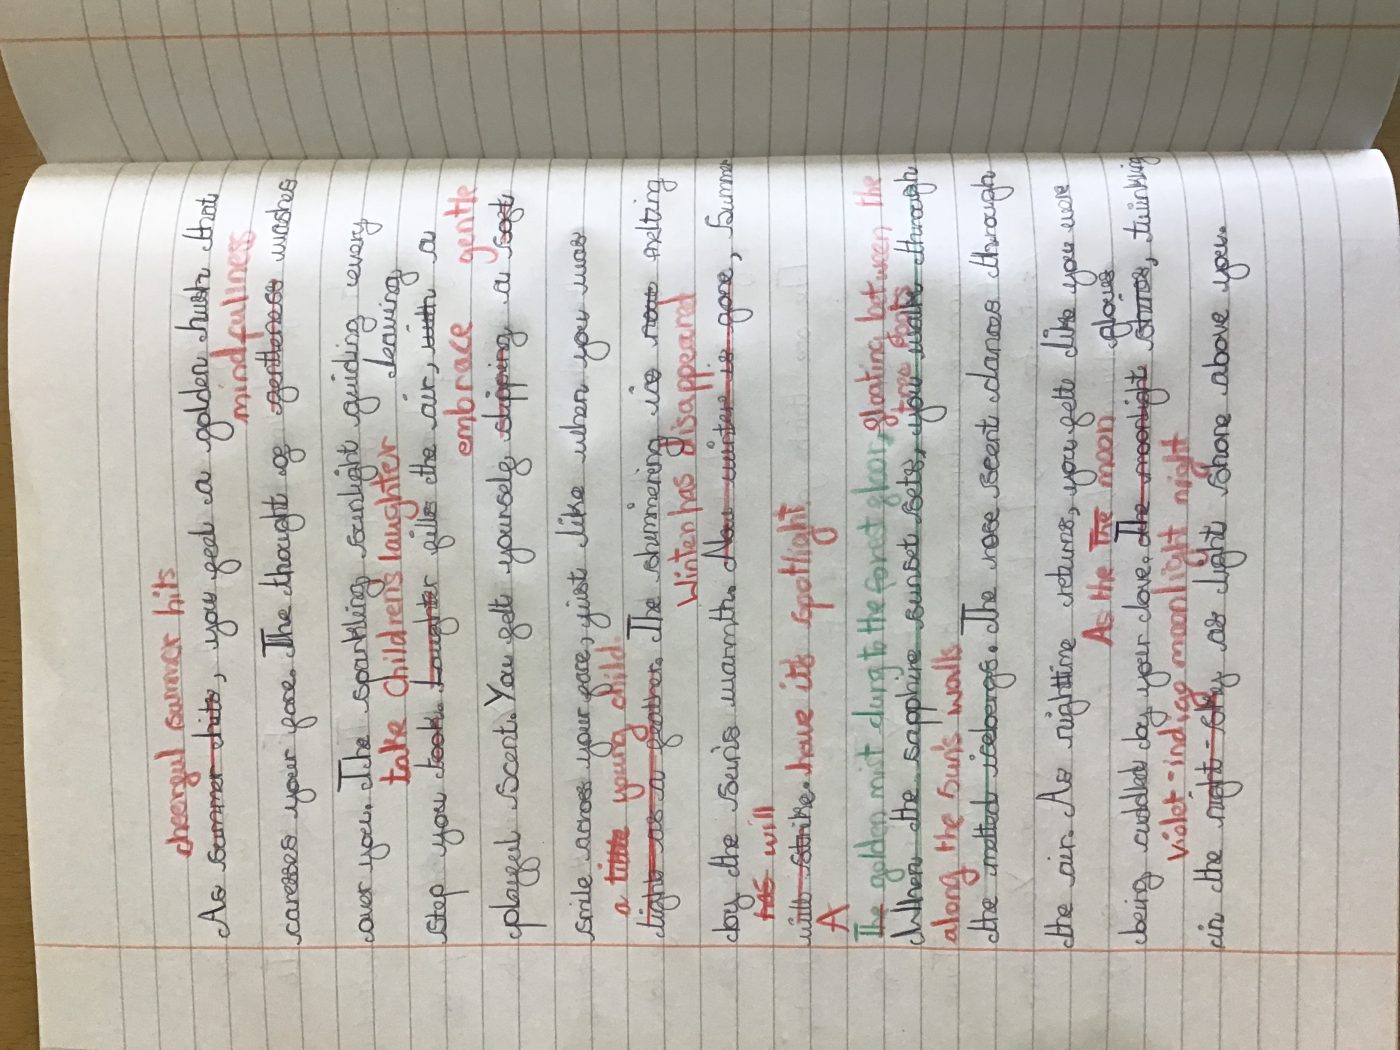 cheerful summer hits
As summer hits, you feel a golden hush that
mindfullness
caresses your face. The thought of gentleness washes
over you. The sparkling sunlight guiding every
take Childrens laughter leaving
step you took. Laughter fills the air, with a
embrace gentle
playful scent. You felt yourself slipping a soft
smile across your face, just like when you was
a little young child.
light as a feather. The shimmering ice now melting
Winter has disappeared
by the sun's warmth. Now winter is gone, Summer
has will
will strike. have its spotlight
A
The golden mist clung to the forest floor, floating between the
tree roots
When the sapphire sunset sets, you walk through
along the sun's walls
the melted icebergs. The rose scent dances through
the air. As nighttime returns, you felt like you were
As the The moon glows
being cuddled by your love. The moonlight shines, twinkling
violet-indigo moonlight night
in the night-sky as light shone above you.